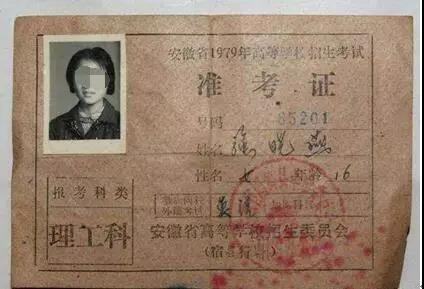 安徽省1979年高等学校招生考试
准考证
号码 65201
姓名 徐晓燕
性别 女 年龄 16
报考科类
理工科
英语
安徽省高等学校招生委员会